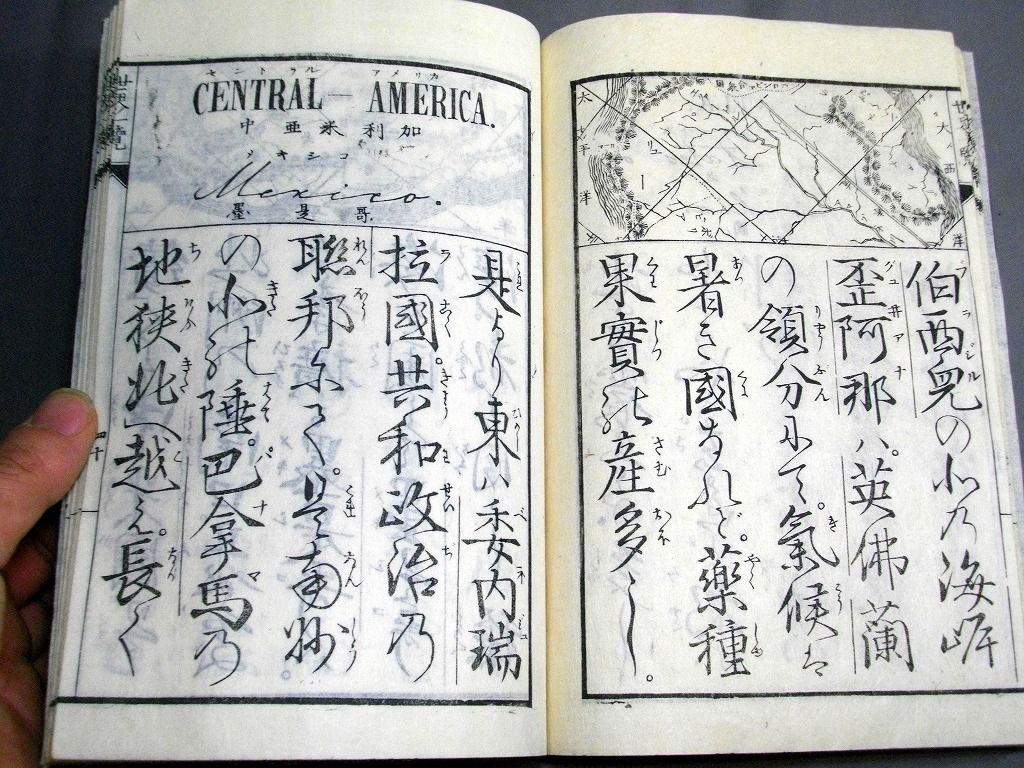 大西洋
太平洋
伯西兒の北乃海岸
歪阿那ハ。英佛蘭
の領分尓て。氣候は
暑き國なれど。薬種
果實の産多し。
セントラル アメリカ
CENTRAL—AMERICA.
中亜米利加
メキシコ
Mexico.
墨是哥
是より東ハ委内瑞
拉國。共和政治乃
聯邦尓て。是南州
の北の陲。巴拿馬乃
地狭北へ越え。長く
四十